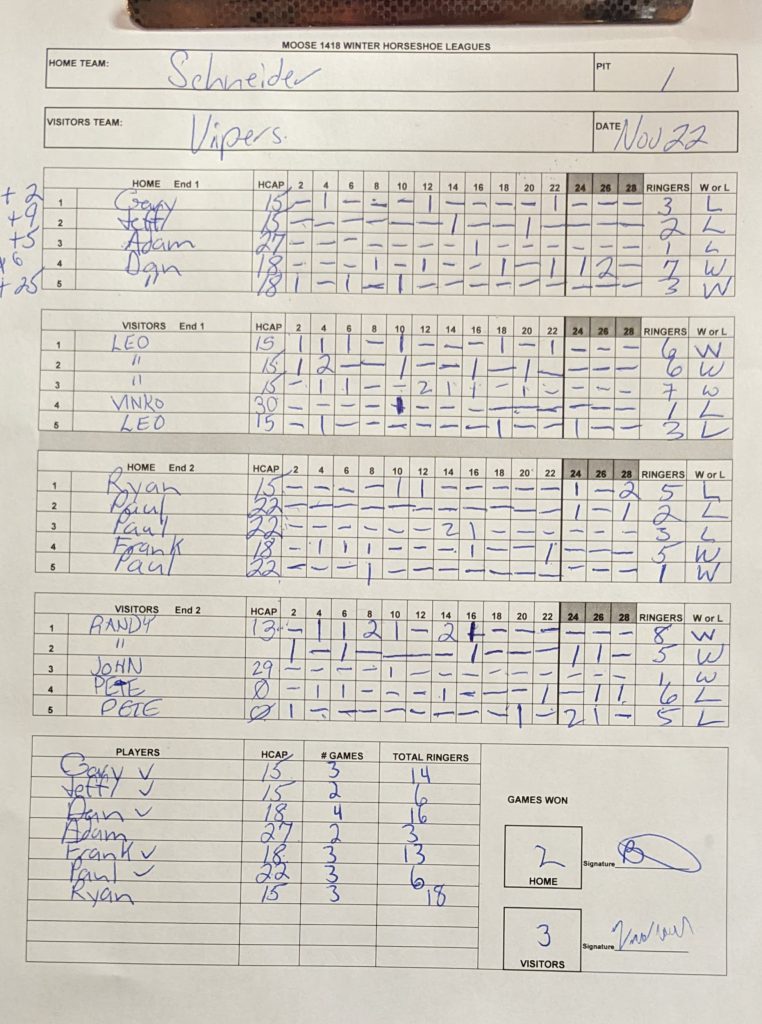 MOOSE 1418 WINTER HORSESHOE LEAGUES
HOME TEAM: Schneider PIT 1
VISITORS TEAM: Vipers. DATE Nov 22
HOME End 1 HCAP 2 4 6 8 10 12 14 16 18 20 22 24 26 28 RINGERS W or L
+2 1 Gary 15 - 1 - - - 1 - - - - 1 - - - 3 L
+9 2 Jeff 15 - - - - - - 1 - - 1 - - - - 2 L
+5 3 Adam 27 - - - - - - - 1 - - - - - - 1 L
+6 4 Dan 18 - - - 1 - 1 - - 1 - 1 1 2 - 7 W
+25 5 " 18 1 - 1 - 1 - - - - - - - - - 3 W
VISITORS End 1 HCAP 2 4 6 8 10 12 14 16 18 20 22 24 26 28 RINGERS W or L
1 LEO 15 1 1 1 - 1 - - - 1 - 1 - - - 6 W
2 " 15 1 2 - - 1 - - 1 - 1 - - - - 6 W
3 " 15 - 1 1 - - 2 1 1 - 1 - - - - 7 W
4 VINKO 30 - - - - 1 - - - - - - - - - 1 L
5 LEO 15 - 1 - - - - - - 1 - - 1 - - 3 L
HOME End 2 HCAP 2 4 6 8 10 12 14 16 18 20 22 24 26 28 RINGERS W or L
1 Ryan 15 - - - - 1 1 - - - - - 1 - 2 5 L
2 Paul 22 - - - - - - - - - - - 1 - 1 2 L
3 Paul 22 - - - - - - 2 1 - - - - - - 3 L
4 Frank 18 - 1 1 1 - - - 1 - - 1 - - - 5 W
5 Paul 22 - - - 1 - - - - - - - - - - 1 W
VISITORS End 2 HCAP 2 4 6 8 10 12 14 16 18 20 22 24 26 28 RINGERS W or L
1 RANDY 13 - 1 1 2 1 - 2 1 - - - - - - 8 W
2 " 1 - 1 - - - - 1 - - - 1 1 - 5 W
3 JOHN 29 - - - - 1 - - - - - - - - - 1 W
4 PETE 0 - 1 1 - - - 1 - - - 1 - 1 1 6 L
5 PETE 0 1 - - - - - - - - 1 - 2 1 - 5 L
PLAYERS HCAP # GAMES TOTAL RINGERS
Gary ✓ 15 3 14
Jeff ✓ 15 2 6
Dan ✓ 18 4 16
Adam 27 2 3
Frank ✓ 18 3 13
Paul ✓ 22 3 6
Ryan 15 3 18
GAMES WON
2 HOME Signature
3 VISITORS Signature